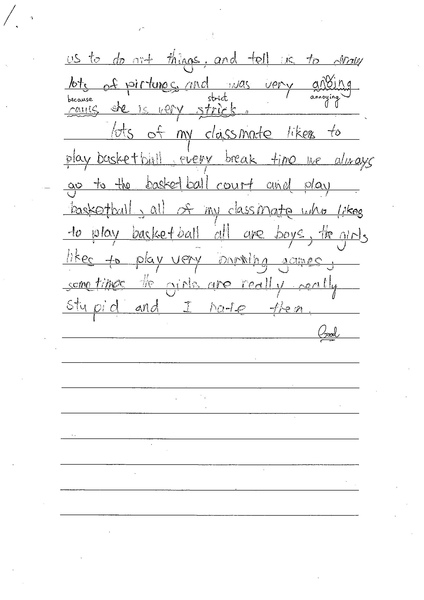 us to do art things, and tell us to draw
lots of pirtures and was very anoing
because strict annoying
cause she is very strick.
lots of my classmate likes to
play basketball, every break time we always
go to the basketball court and play
basketball, all of my classmate who likes
to play basketball all are boys, the girls
likes to play very games,
sometimes the girls are really really
stupid and I hate them.
Good